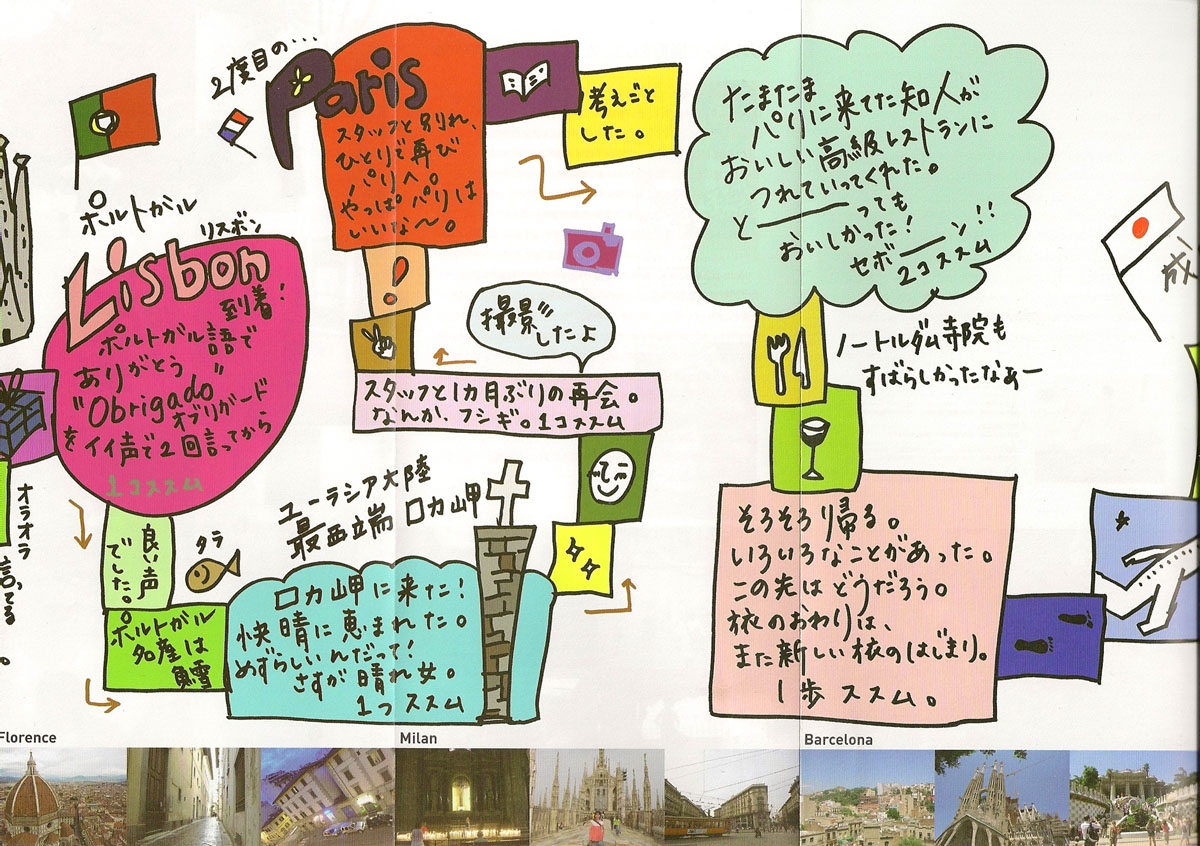 オラオラ
言ってる
。
ポルトガル
リスボン
Lisbon
到着!
ポルトガル語で
ありがとう
"Obrigado"
オブリガード
をイイ声で2回言ってから
1コススム
良い声
でした。
タラ
ポルトガル
名産は
鱈
ユーラシア大陸
最西端 ロカ岬
ロカ岬に来た!
快晴に恵まれた。
めずらしいんだって!
さすが晴れ女。
1つススム
スタッフと1カ月ぶりの再会。
なんか、フシギ。1コススム
撮影したよ
!
2度目の...
Paris
スタッフと別れ、
ひとりで再び
パリへ。
やっぱパリは
いいな〜。
考えごと
した。
たまたま
パリに来てた知人が
おいしい高級レストランに
つれていってくれた。
と――っても
おいしかった!
セボ――ン!!
2コススム
ノートルダム寺院も
すばらしかったなぁー
そろそろ帰る。
いろいろなことがあった。
この先はどうだろう。
旅のおわりは、
また新しい旅のはじまり。
1歩ススム。
成
Florence
Milan
Barcelona